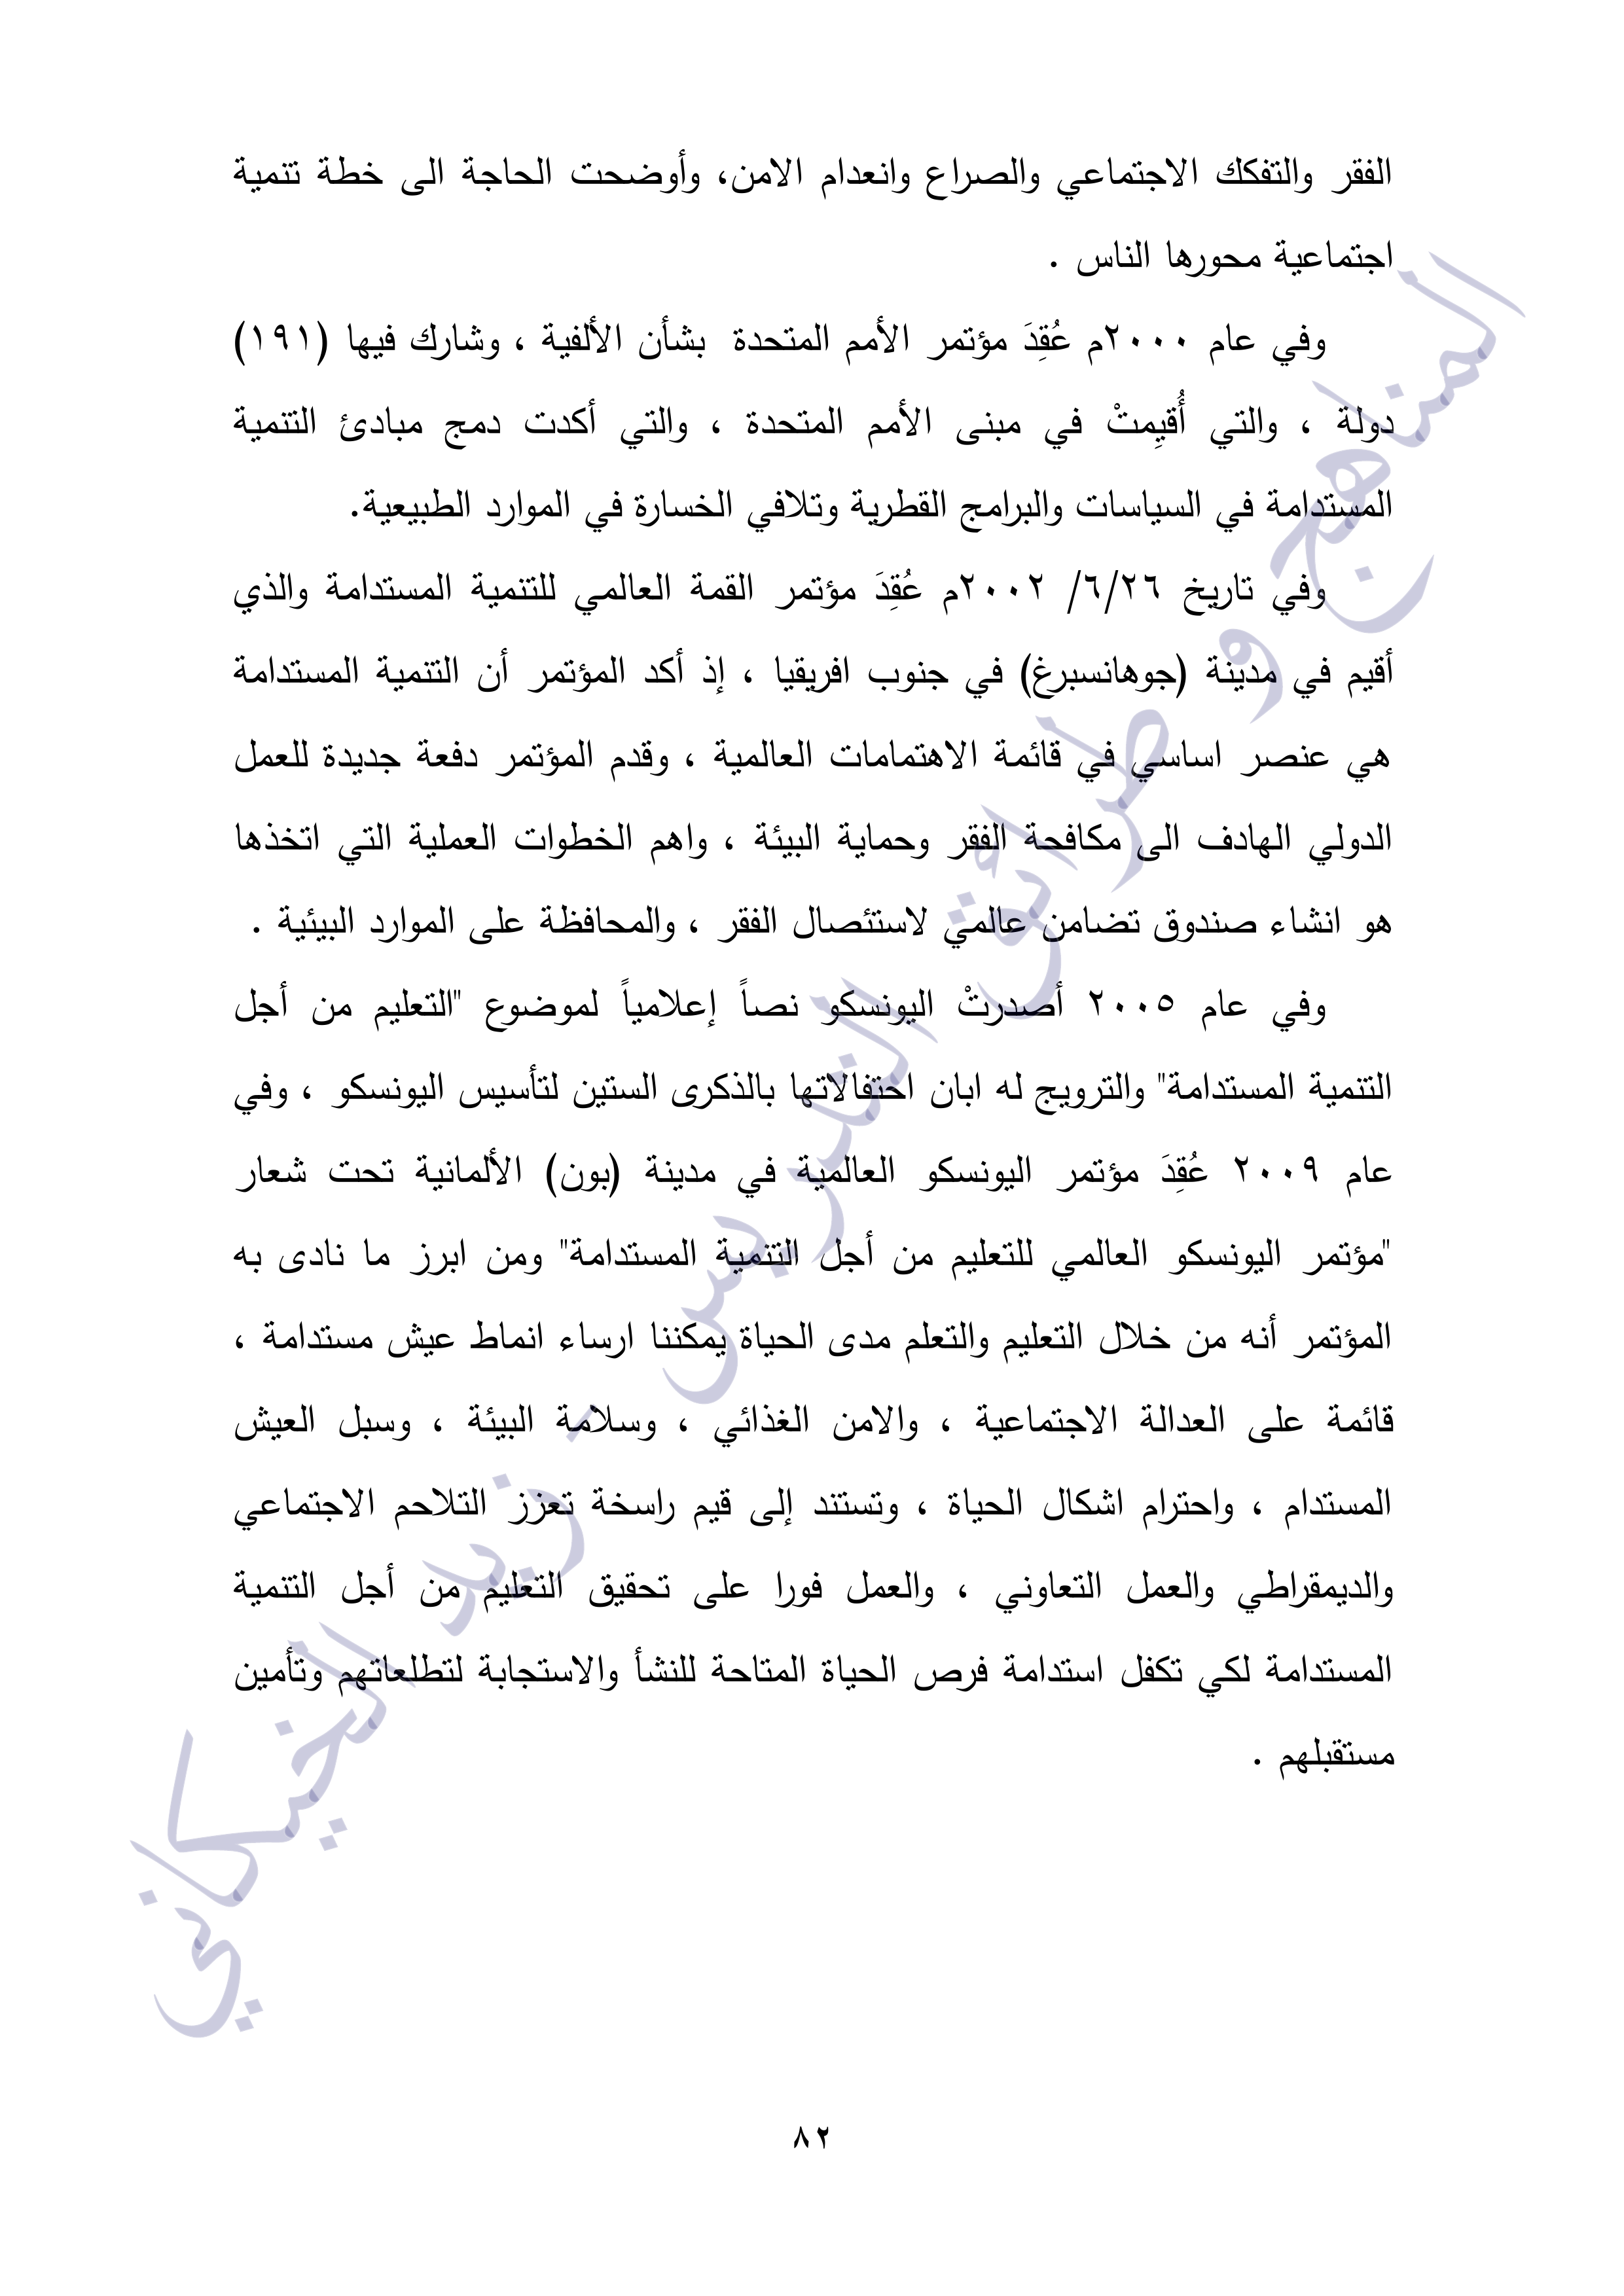 الفقر والتفكك الاجتماعي والصراع وانعدام الامن، وأوضحت الحاجة الى خطة تنمية
اجتماعية محورها الناس .
وفي عام ٢٠٠٠م عُقِدَ مؤتمر الأمم المتحدة بشأن الألفية ، وشارك فيها (١٩١)
دولة ، والتي أُقيِمتْ في مبنى الأمم المتحدة ، والتي أكدت دمج مبادئ التنمية
المستدامة في السياسات والبرامج القطرية وتلافي الخسارة في الموارد الطبيعية.
وفي تاريخ ٢٦/٦/ ٢٠٠٢م عُقِدَ مؤتمر القمة العالمي للتنمية المستدامة والذي
أقيم في مدينة (جوهانسبرغ) في جنوب افريقيا ، إذ أكد المؤتمر أن التنمية المستدامة
هي عنصر اساسي في قائمة الاهتمامات العالمية ، وقدم المؤتمر دفعة جديدة للعمل
الدولي الهادف الى مكافحة الفقر وحماية البيئة ، واهم الخطوات العملية التي اتخذها
هو انشاء صندوق تضامن عالمي لاستئصال الفقر ، والمحافظة على الموارد البيئية .
وفي عام ٢٠٠٥ أصدرتْ اليونسكو نصاً إعلامياً لموضوع "التعليم من أجل
التنمية المستدامة" والترويج له ابان احتفالاتها بالذكرى الستين لتأسيس اليونسكو ، وفي
عام ٢٠٠٩ عُقِدَ مؤتمر اليونسكو العالمية في مدينة (بون) الألمانية تحت شعار
"مؤتمر اليونسكو العالمي للتعليم من أجل التنمية المستدامة" ومن ابرز ما نادى به
المؤتمر أنه من خلال التعليم والتعلم مدى الحياة يمكننا ارساء انماط عيش مستدامة ،
قائمة على العدالة الاجتماعية ، والامن الغذائي ، وسلامة البيئة ، وسبل العيش
المستدام ، واحترام اشكال الحياة ، وتستند إلى قيم راسخة تعزز التلاحم الاجتماعي
والديمقراطي والعمل التعاوني ، والعمل فورا على تحقيق التعليم من أجل التنمية
المستدامة لكي تكفل استدامة فرص الحياة المتاحة للنشأ والاستجابة لتطلعاتهم وتأمين
مستقبلهم .
المناهج و طرائق التدريس - زيد الخيكاني
٨٢